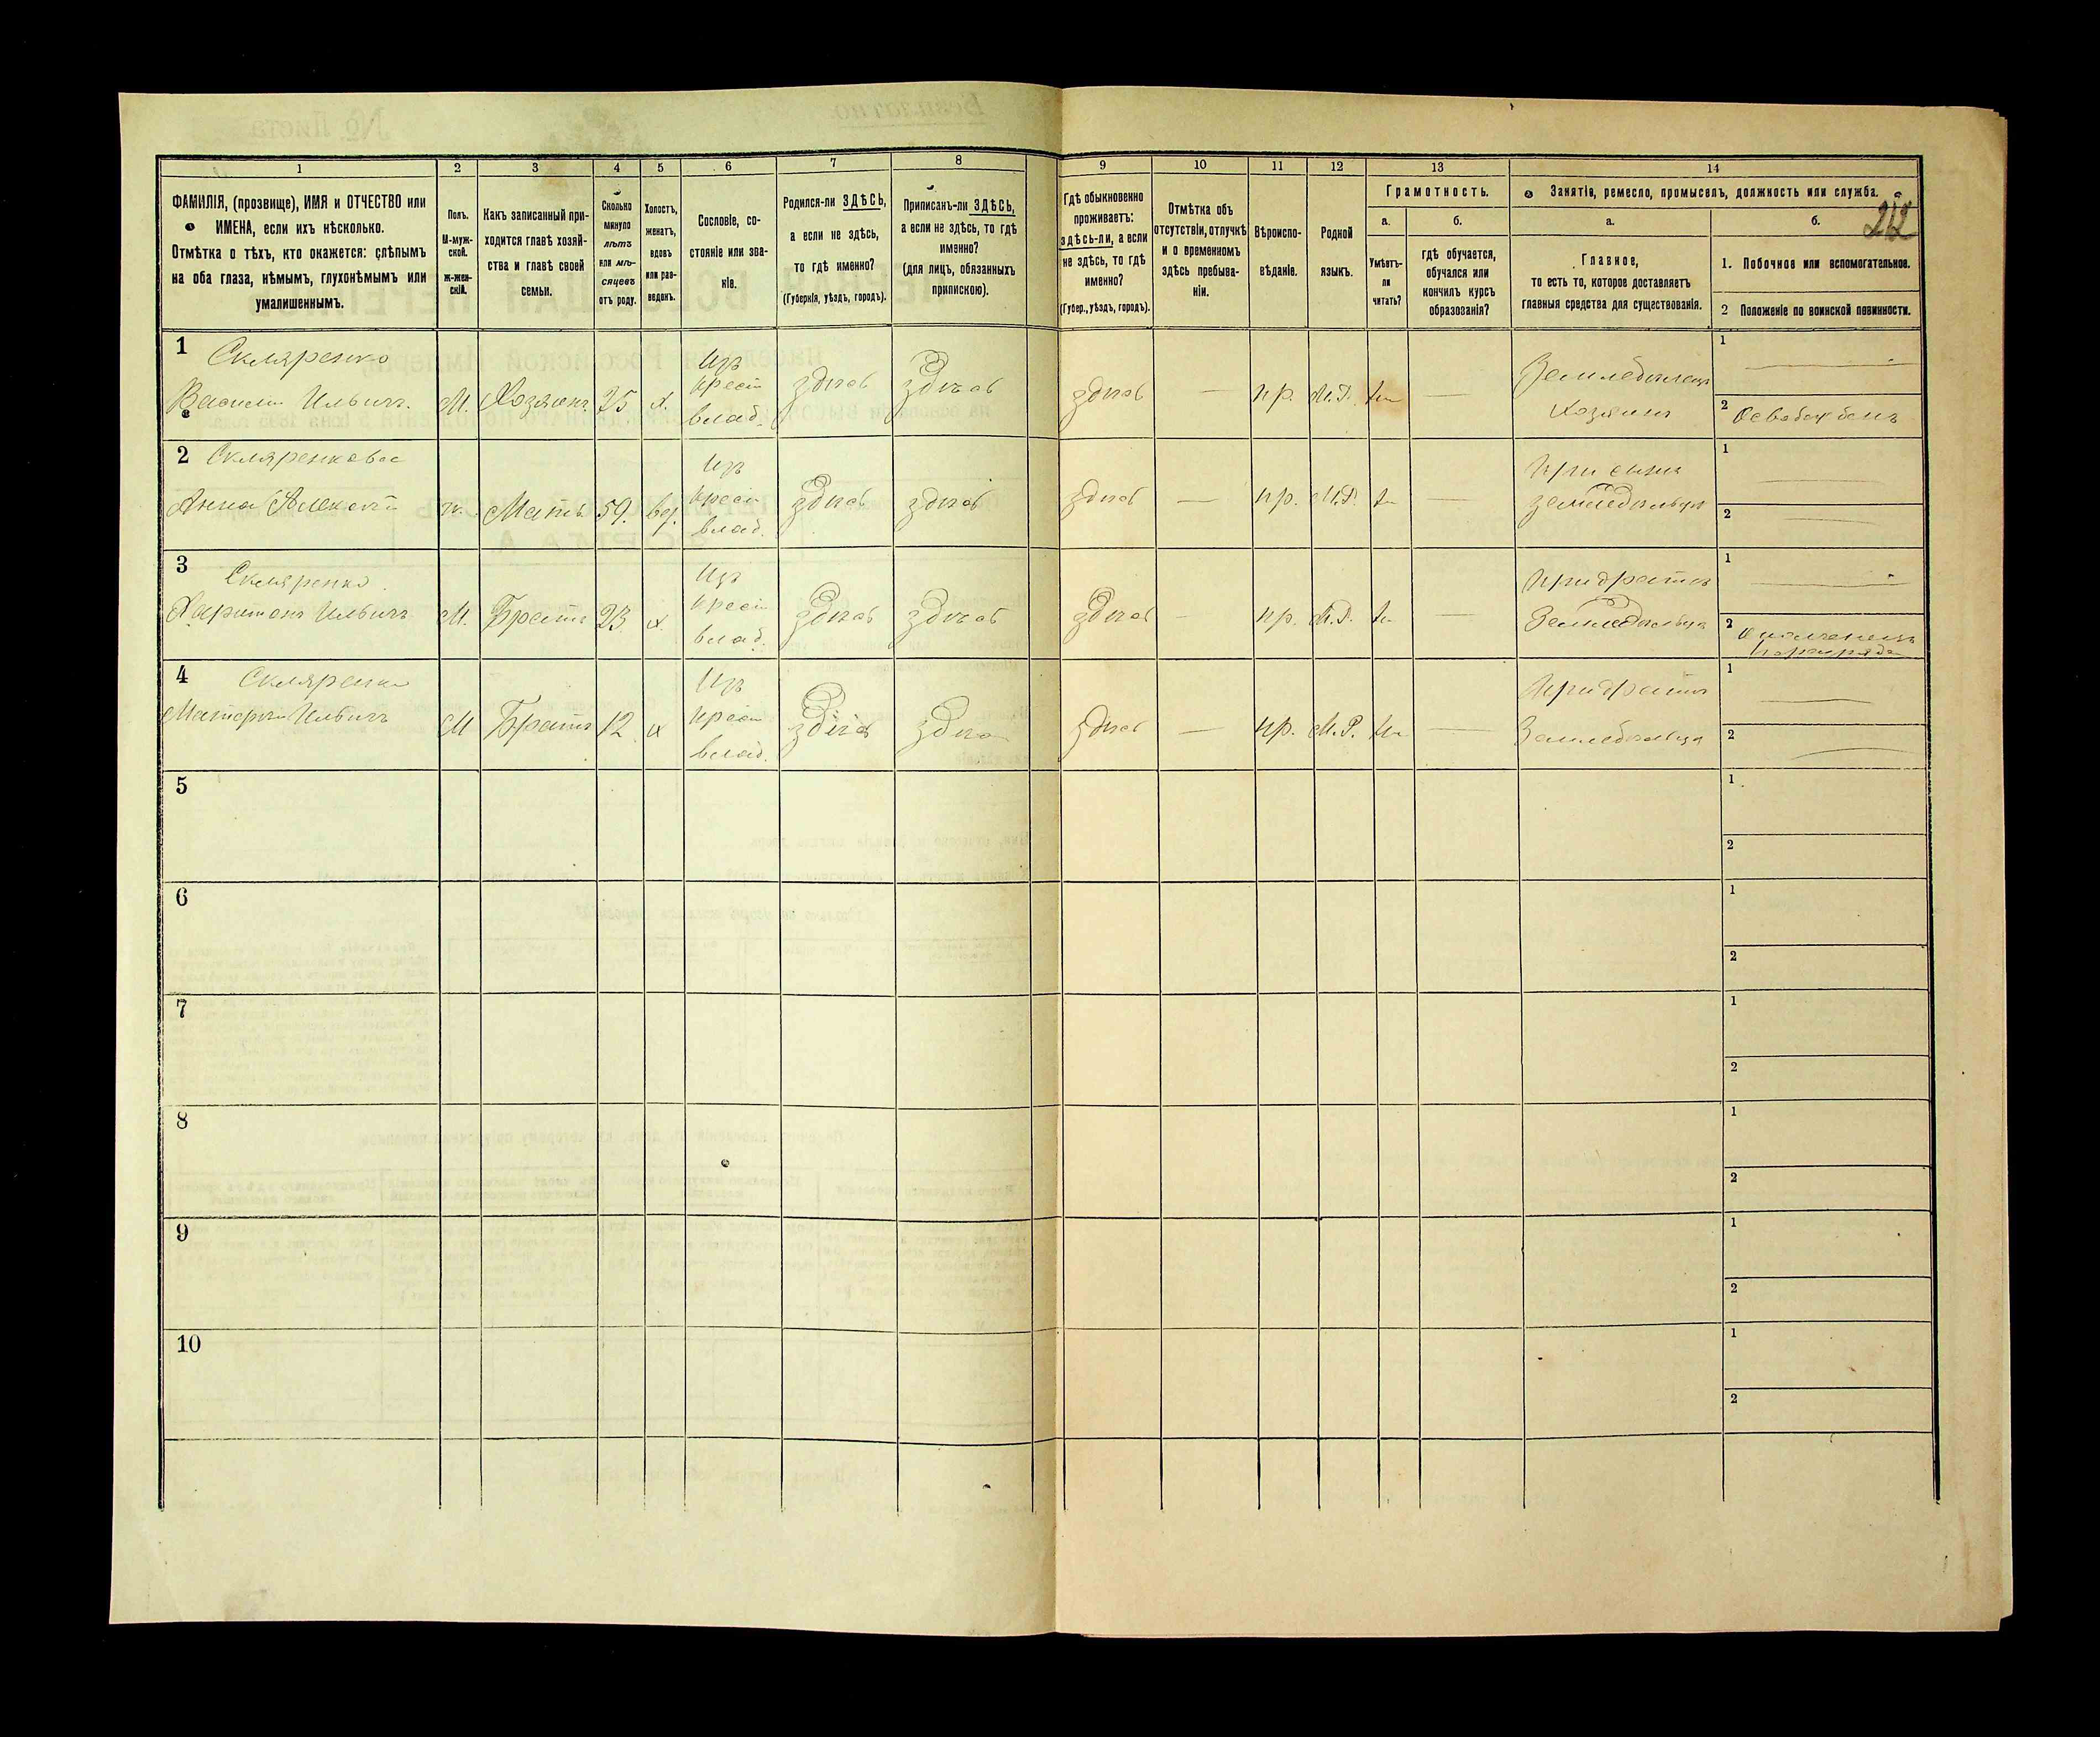 1
2
3
4
5
6
7
8
9
10
11
12
13
14
ФАМИЛІЯ, (прозвище), ИМЯ и ОТЧЕСТВО или
ИМЕНА, если ихъ нѣсколько.
Отмѣтка о тѣхъ, кто окажется: слѣпымъ
на оба глаза, нѣмымъ, глухонѣмымъ или
умалишеннымъ.
Полъ.
М-муж-
ской.
Ж-жен-
скій.
Какъ записанный при-
ходится главѣ хозяй-
ства и главѣ своей
семьи.
Сколько
минуло
лѣтъ
или мѣ-
сяцевъ
отъ роду.
Холостъ,
женатъ,
вдовъ
или раз-
веденъ.
Сословіе, со-
стояніе или зва-
ніе.
Родился-ли ЗДѢСЬ,
а если не здѣсь,
то гдѣ именно?
(Губернія, уѣздъ, городъ).
Приписанъ-ли ЗДѢСЬ,
а если не здѣсь, то гдѣ
именно?
(для лицъ, обязанныхъ
припискою).
Гдѣ обыкновенно
проживаетъ:
здѣсь-ли, а если
не здѣсь, то гдѣ
именно?
(Губер., уѣздъ, городъ).
Отмѣтка объ
отсутствіи, отлучкѣ
и о временномъ
здѣсь пребыва-
ніи.
Вѣроиспо-
вѣданіе.
Родной
языкъ.
Грамотность.
а.
б.
Умѣетъ-
ли
читать?
гдѣ обучается,
обучался или
кончилъ курсъ
образованія?
Занятіе, ремесло, промыселъ, должность или служба.
а.
б.
212
Главное,
то есть то, которое доставляетъ
главныя средства для существованія.
1. Побочное или вспомогательное.
2 Положеніе по воинской повинности.
1 Скляренко
Василий Ильичъ. М. Хозяинъ 25 х. Изъ крест влад. здѣсь здѣсь здѣсь — пр. М.Р. — Земледѣлецъ Хозяинъ
1 —
2 Освобожденъ
2 Скляренкова
Анна ж. Мать 59. вд. Изъ крест влад. здѣсь здѣсь здѣсь — пр. М.Р. — При сынѣ земледѣльцѣ
1 —
2 —
3 Скляренко
Харитонъ Ильичъ М. Братъ 23 х. Изъ крест влад. здѣсь здѣсь здѣсь — пр. М.Р. — При братѣ Земледѣльцѣ
1 —
2 Ополченецъ
4 Скляренко
Ильичъ М Братъ 12 х Изъ крест влад. здѣсь здѣсь здѣсь — пр. М.Р. — При братѣ Земледѣльца
1 —
2 —
5
1
2
6
1
2
7
1
2
8
1
2
9
1
2
10
1
2